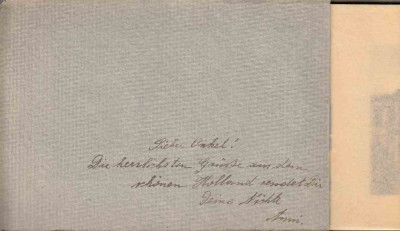 Lieber Onkel!
Die herzlichsten Grüße aus dem
schönen Holland sendet Dir
Deine Nichte
Anni.